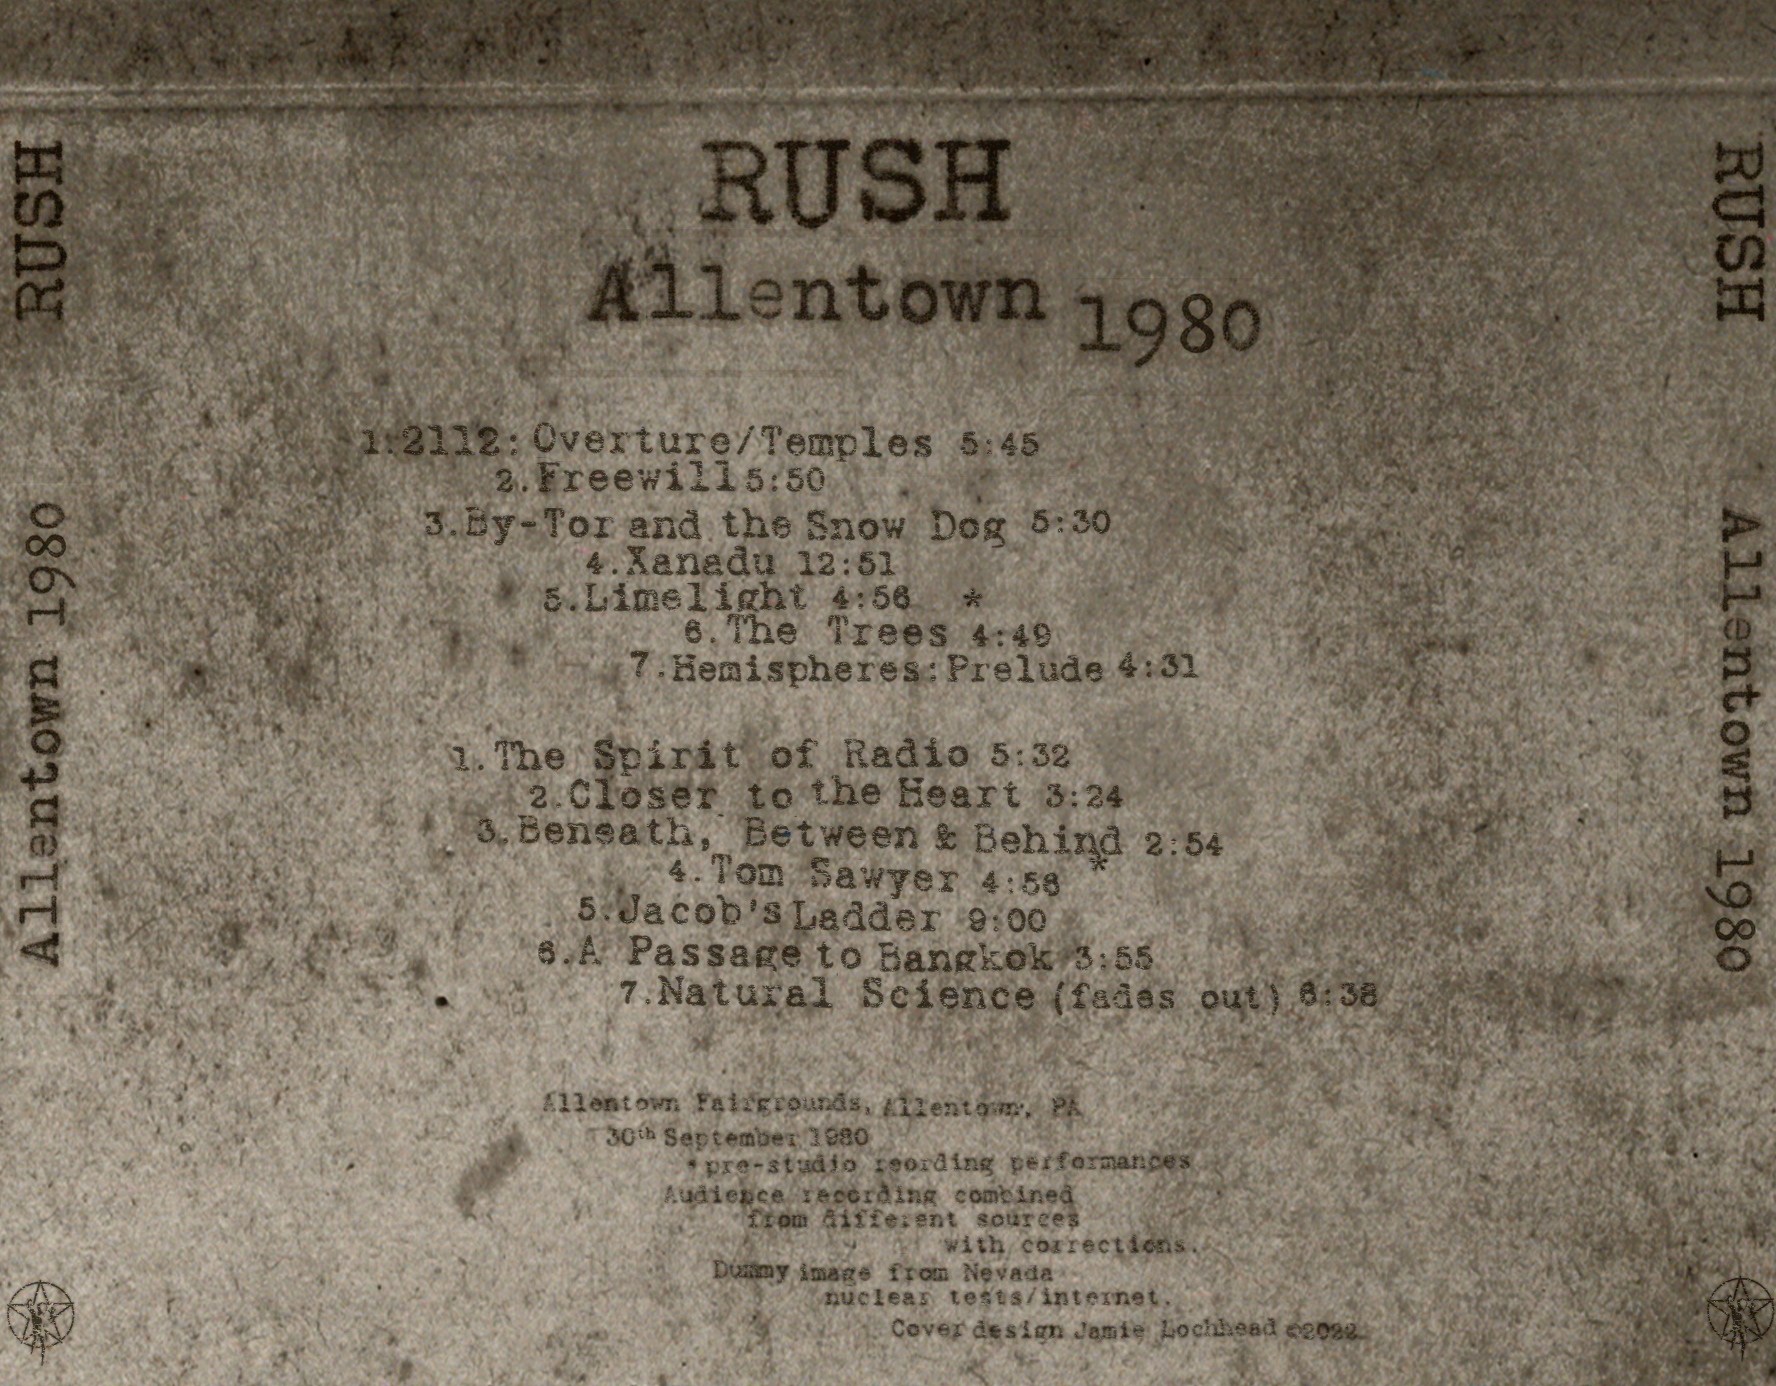 RUSH
Allentown 1980
1.2112: Overture/Temples 5:45
2.Freewill 5:50
3.By-Tor and the Snow Dog 5:30
4.Xanadu 12:51
5.Limelight 4:56 *
6.The Trees 4:49
7.Hemispheres:Prelude 4:31
1.The Spirit of Radio 5:32
2.Closer to the Heart 3:24
3.Beneath, Between & Behind 2:54
4.Tom Sawyer 4:58 *
5.Jacob's Ladder 9:00
6.A Passage to Bangkok 3:55
7.Natural Science (fades out) 6:38
Allentown Fairgrounds, Allentown, PA
30th September 1980
*pre-studio reording performances
Audience recording combined
from different sources
with corrections.
Dummy image from Nevada
nuclear tests/internet.
Cover design Jamie Lochhead ©2022
RUSH
Allentown 1980
RUSH
Allentown 1980